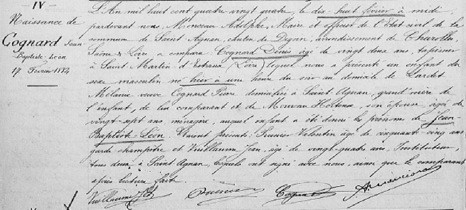 IV
Naissance de
Cognard Jean
Baptiste Léon
17 Février 1884
L'An mil huit cent quatre vingt quatre, le dix huit Février à midi
pardevant nous Moreau Adolphe, Maire et officier de l'Etat civil de la
commune de Saint Agnan, canton de Digoin, arrondissement de Charolles
Saône & Loire a comparu Cognard Denis âgé de vingt deux ans,
à Saint Martin d'Estréaux Loire, lequel nous a présenté un enfant du
sexe masculin né hier à une heure du soir au domicile de
Mélanie veuve Cognard Jean domiciliée à Saint Agnan, grand'mère de
l'enfant, de lui comparant et de son épouse, âgée de
vingt-sept ans ménagère, auquel enfant il a été donné les prénoms de Jean
Baptiste Léon. Présents Valentin âgé de cinquante cinq ans
garde champêtre et Vuillaume Jean, âgé de vingt quatre ans Instituteur,
tous deux à Saint Agnan, lesquels ont signé avec nous, ainsi que le comparant
après lecture faite
Vuillaume Cognard